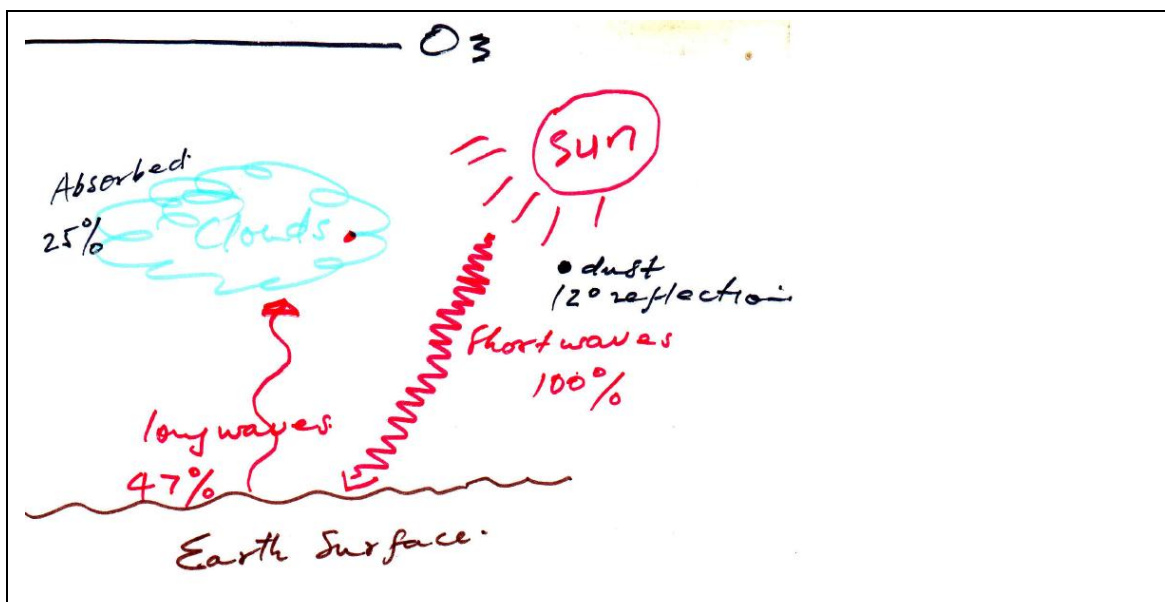 O3
Sun
Absorbed
25%
Clouds
dust
12° reflection
Short waves
100%
long waves
47%
Earth Surface.